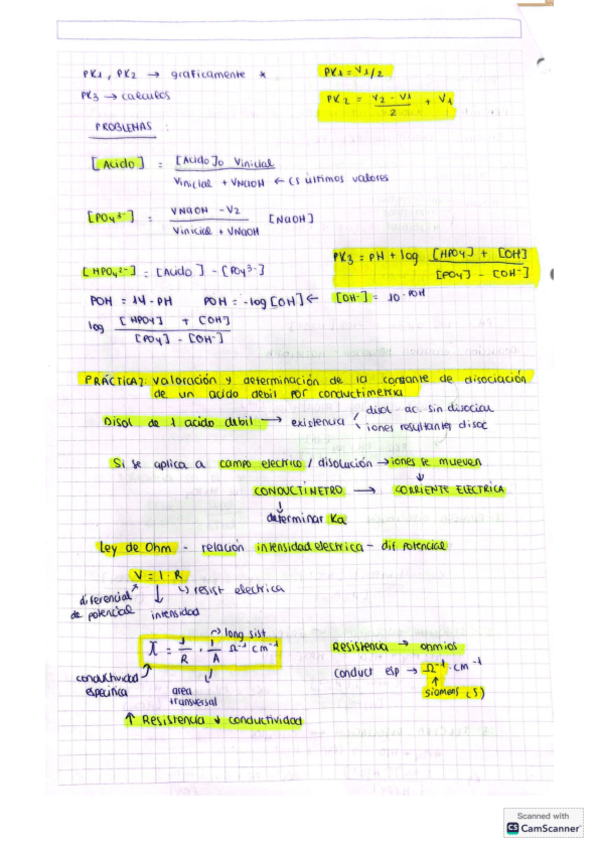 PK1, PK2 → graficamente *
PK1 = V1/2
PK3 → calculos
PK2 = V2 - V1 / 2 + V1
PROBLEMAS :
[Acido] = [Acido]0 Vinicial / Vinicial + VNaOH ← cs últimos valores
[PO4³⁻] = VNaOH - V2 / Vinicial + VNaOH [NaOH]
PK3 = PH + log [HPO4] + [OH] / [PO4] - [OH⁻]
[HPO4²⁻] = [Acido] - [PO4³⁻]
POH = 14 - PH POH = -log [OH] ← [OH⁻] = 10⁻ᴾᴼᴴ
log [HPO4] + [OH] / [PO4] - [OH⁻]
PRÁCTICA 2: valoración y determinación de la constante de disociación
de un acido debil por conductimetria
Disol de 1 acido debil → existencia / disol - ac. sin disociar
\ iones resultantes disoc
Si se aplica a campo electrico / disolución → iones se mueven
CONDUCTIMETRO → CORRIENTE ELECTRICA
↓
determinar Ka
Ley de Ohm - relación intensidad electrica - dif potencial
V = I · R
↳ resist electrica
diferencial de potencial
intensidad
long sist
X = 1/R · 1/A Ω⁻¹ cm⁻¹
Resistencia → ohmios
conductividad especifica
area transversal
conduct esp → Ω⁻¹ · cm⁻¹
↑
siemens (S)
↑ Resistencia ↓ conductividad
Scanned with
CS CamScanner